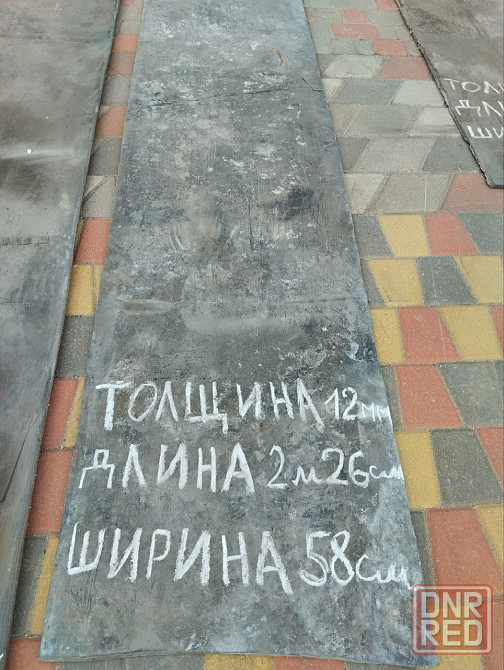 ТОЛЩИНА 12мм
ДЛИНА 2м26см
ШИРИНА 58см
ТОЛ
ДЛИ
ШИ
DNR
RED